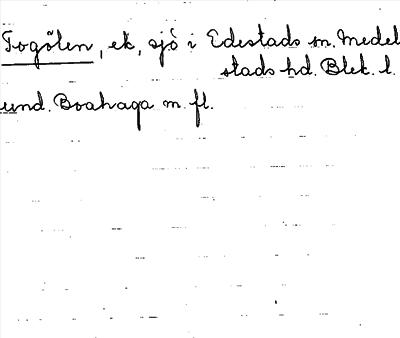 Fogölen, ek, sjö i Edestads sn. Medel
stads hd. Blek. l.
und. Boahaga m. fl.